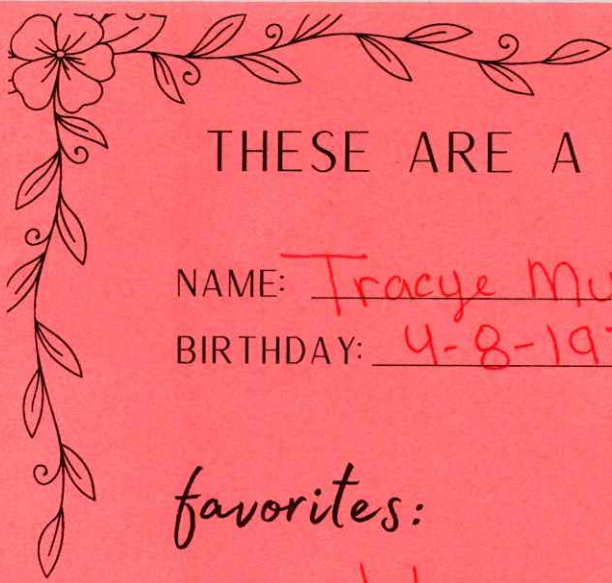 THESE ARE A
NAME: Tracye Mu
BIRTHDAY: 4-8-19
favorites: